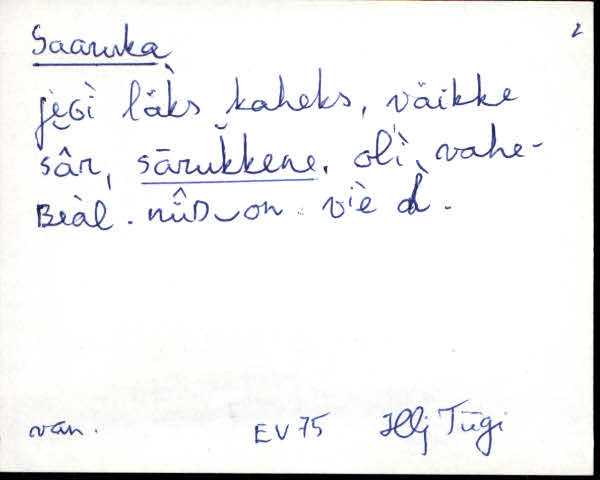 2
Saaruka
jè̮Gì lä̀ks kaheks, väikke
sâr, sārŭkkene. olì, vahe-
Beàl. nîiD‿on viè
vän. EV 75 Hlj Tügi